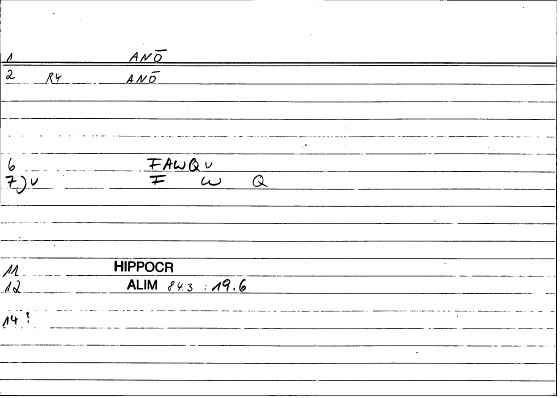 1 ANŌ
2 R4 ANŌ
6 FAWQU
7)υ F W Q
11 HIPPOCR
12 ALIM 84.3 : 19.6
14 !